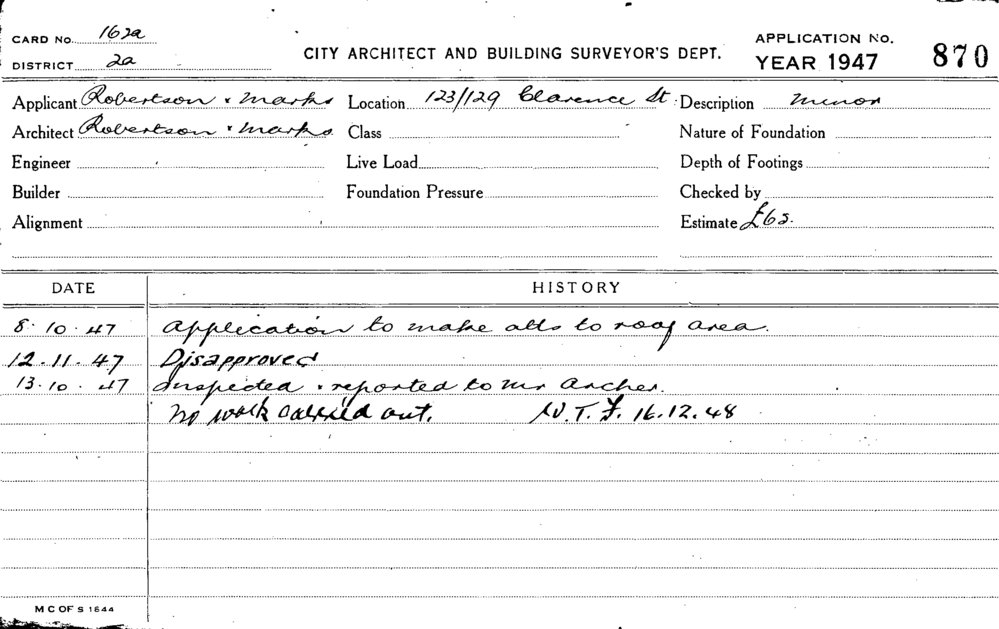 CARD No. 162a
DISTRICT 2a
CITY ARCHITECT AND BUILDING SURVEYOR'S DEPT.
APPLICATION No.
YEAR 1947 870
Applicant Robertson & Marks Location 123/129 Clarence St. Description Minor
Architect Robertson & Marks Class Nature of Foundation
Engineer Live Load Depth of Footings
Builder Foundation Pressure Checked by
Alignment Estimate £65.
DATE HISTORY
8.10.47 Application to make alts to roof area.
12.11.47 Disapproved
13.10.47 Inspected & reported to Mr Archer.
No work carried out. W.T.F. 16.12.48
M C OF S 1644